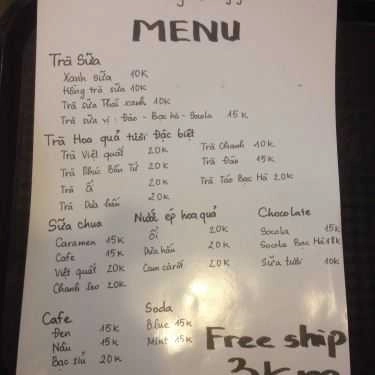 MENU
Trà Sữa
Xanh sữa 10K
Hồng trà sữa 10K
Trà sữa Thái xanh 10K
Trà sữa vị: Đào - Bạc hà - Socola 15K
Trà Hoa quả tươi Đặc biệt
Trà Việt quất 20K
Trà Chanh 10K
Trà Phúc Bồn Tử 20K
Trà Đào 15K
Trà Ổi 20K
Trà Táo Bạc Hà 20K
Trà Dưa hấu 20K
Sữa chua
Caramen 15K
Cafe 15K
Việt quất 20K
Chanh leo 20K
Nước ép hoa quả
Ổi 20K
Dưa hấu 20K
Cam cà rốt 20K
Chocolate
Socola 15K
Socola Bạc Hà 18K
Sữa tươi 10K
Cafe
Đen 15K
Nâu 15K
Bạc sỉu 20K
Soda
Blue 15K
Mint 15K
Free ship